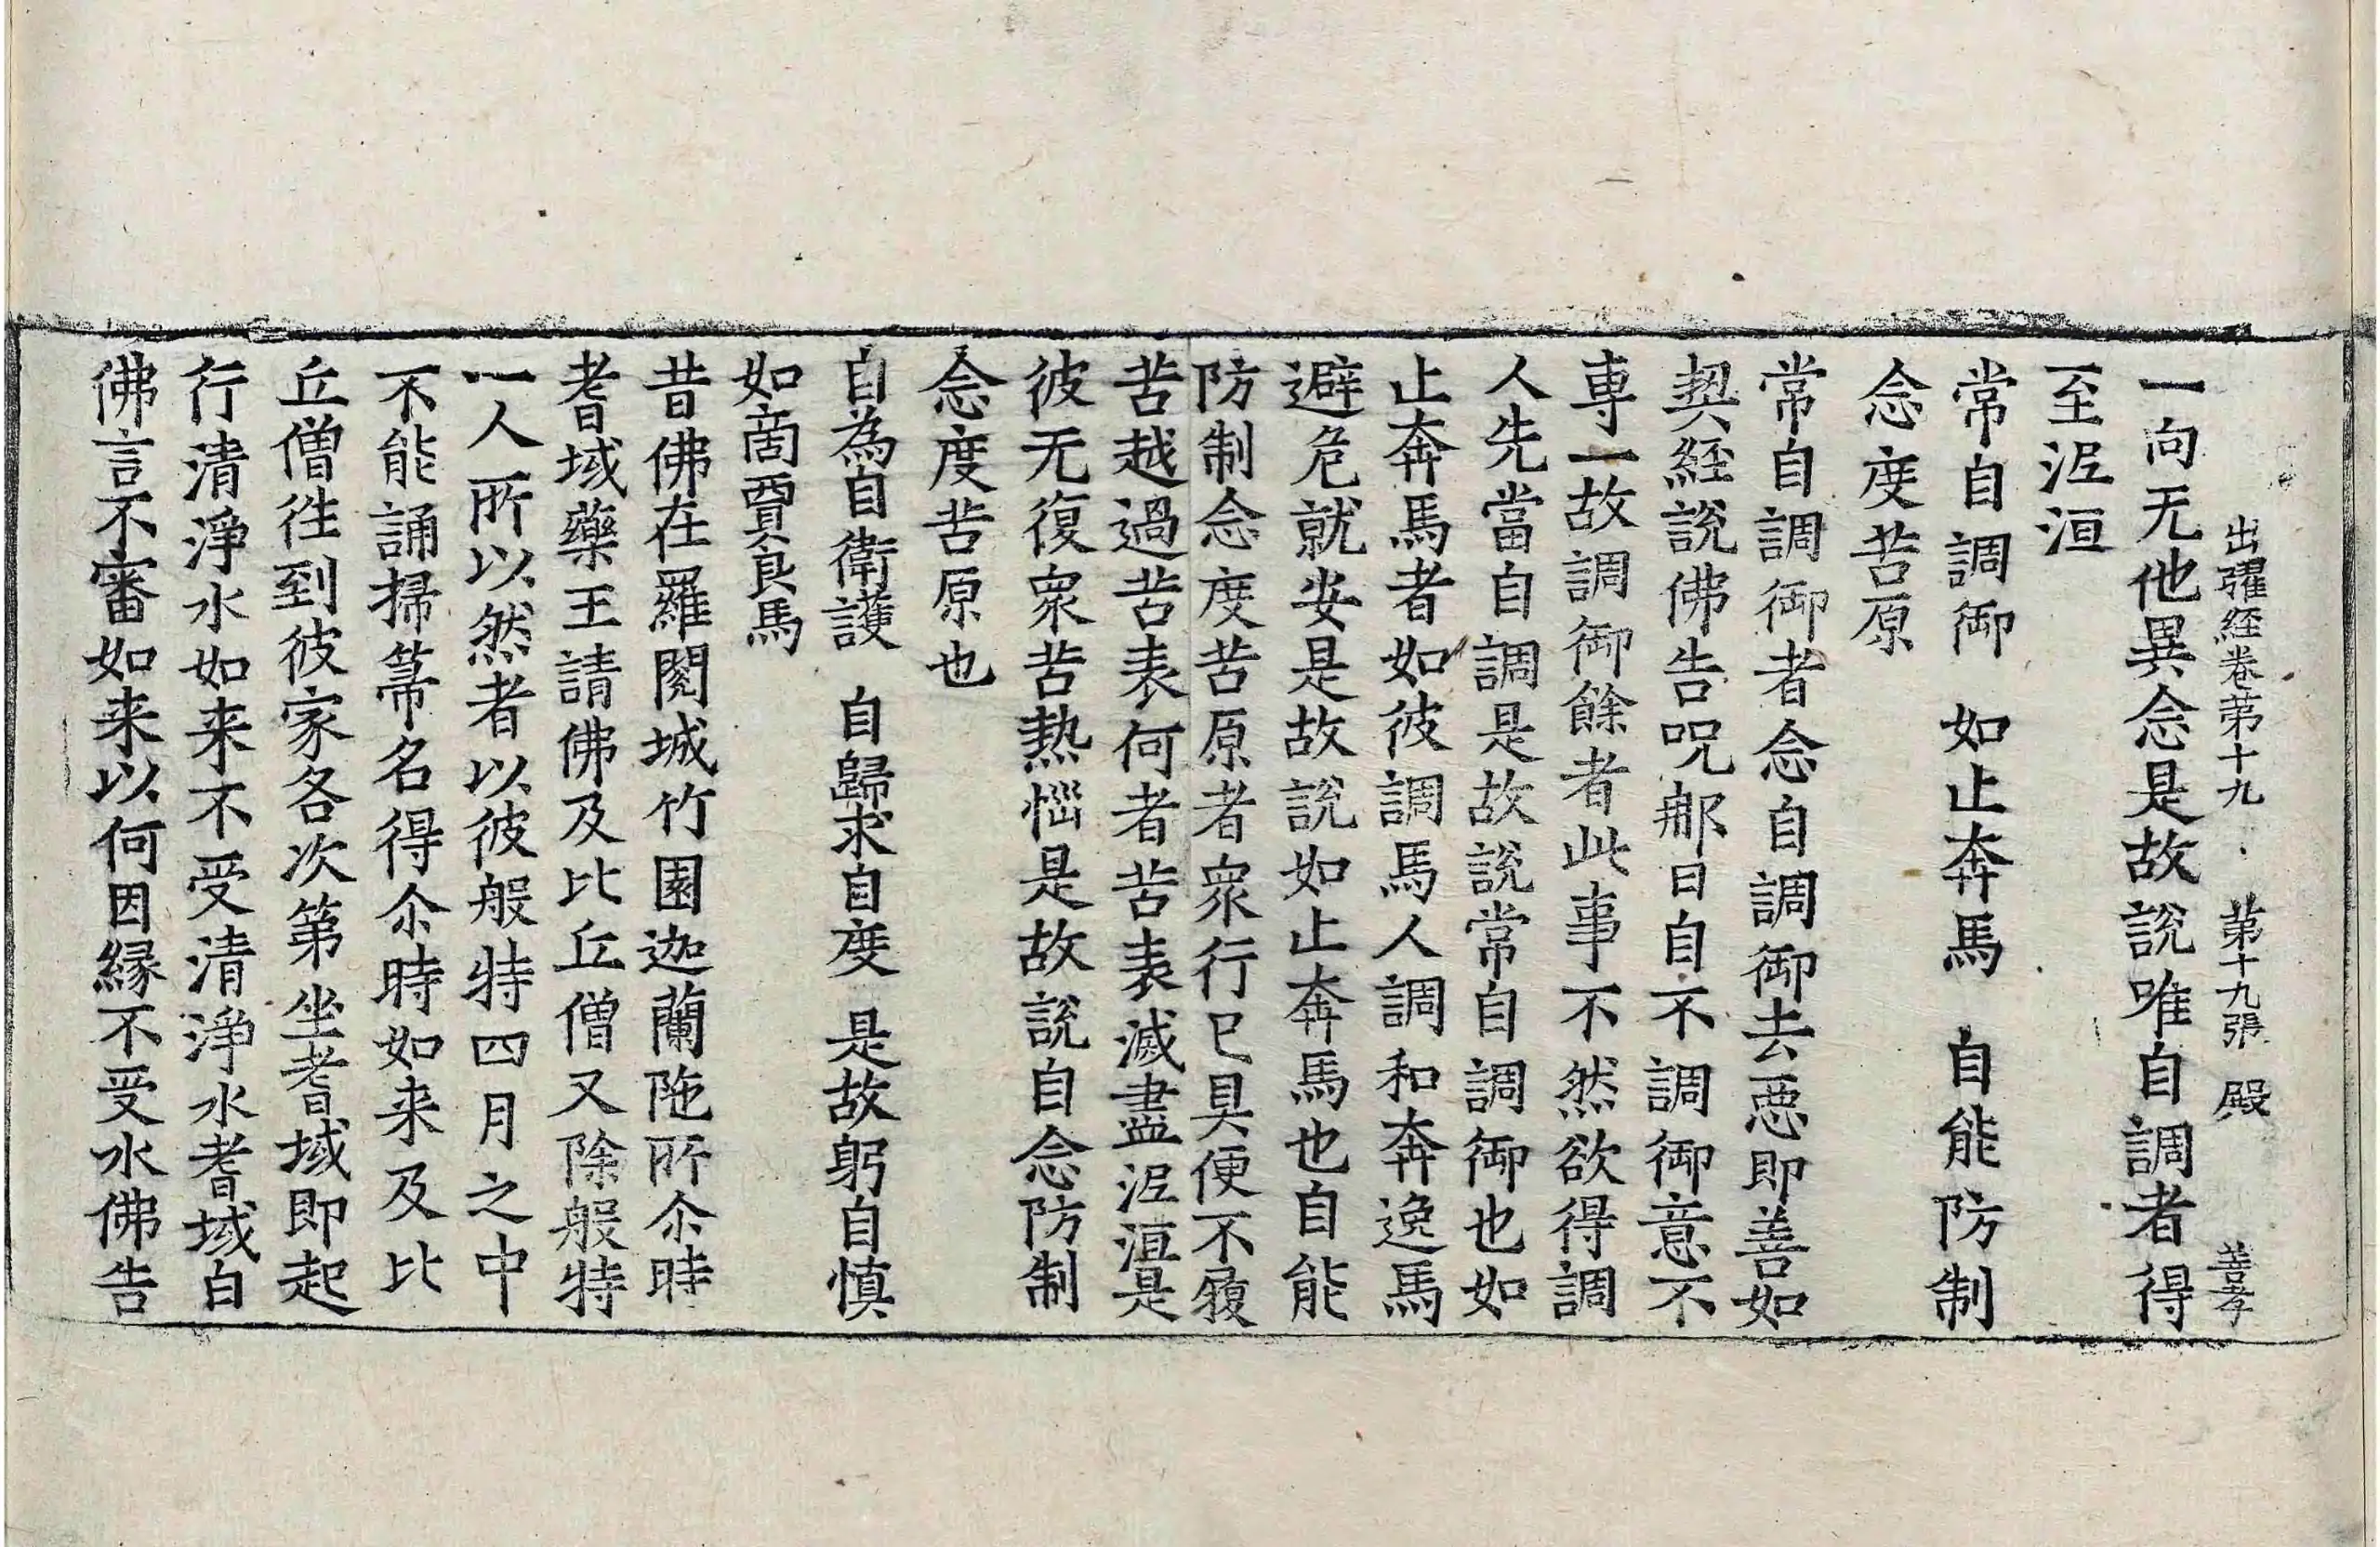 出曜経卷苐十九 第十九張 殿 善孝
一向无他異念是故說唯自調者得
至泥洹
常自調御 如止奔馬 自能防制
念度苦原
常自調御者念自調御去惡即善如
契経說佛告呪那曰自不調御意不
専一故調御餘者此事不然欲得調
人先當自調是故說常自調御也如
止奔馬者如彼調馬人調和奔逸馬
避危就安是故說如止奔馬也自能
防制念度苦原者衆行已具便不履
苦越過苦表何者苦表滅盡泥洹是
彼无復衆苦熱惱是故說自念防制
念度苦原也
自為自衛護 自歸求自度 是故躬自慎
如啇賈良馬
昔佛在羅閱城竹園迦蘭陁所尒時
耆域藥王請佛及比丘僧又除般特
一人所以然者以彼般特四月之中
不能誦掃箒名得尒時如来及比
丘僧徃到彼家各次第坐耆域即起
行清淨水如来不受清淨水耆域白
佛言不審如来以何因縁不受水佛告